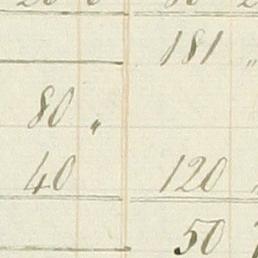 181 "
80 "
40 120
50